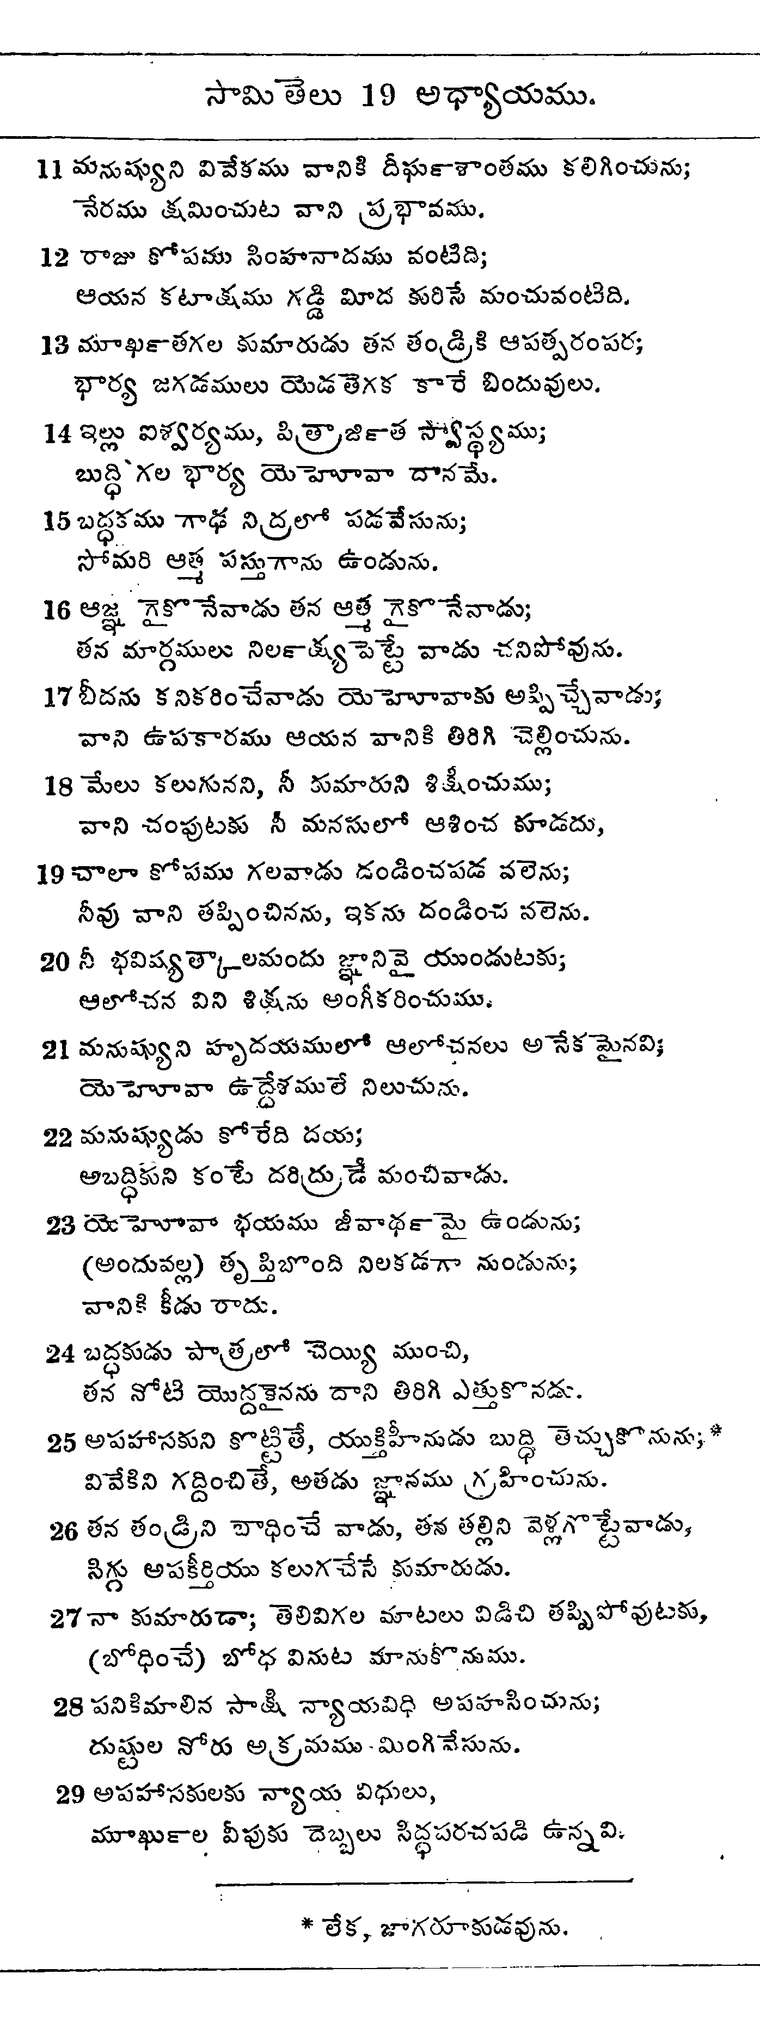 సామితెలు 19 అధ్యాయము.
11 మనుష్యుని వివేకము వానికి దీర్ఘశాంతము కలిగించును;
నేరము క్షమించుట వాని ప్రభావము.
12 రాజు కోపము సింహనాదము వంటిది;
ఆయన కటాక్షము గడ్డి మీద కురిసే మంచువంటిది.
13 మూర్ఖతగల కుమారుడు తన తండ్రికి ఆపత్పరంపర;
భార్య జగడములు యెడతెగక కారే బిందువులు.
14 ఇల్లు ఐశ్వర్యము, పిత్రార్జిత స్వాస్థ్యము;
బుద్ధిగల భార్య యెహోవా దానమే.
15 బద్ధకము గాఢ నిద్రలో పడవేసును;
సోమరి ఆత్మ పస్తుగాను ఉండును.
16 ఆజ్ఞ గైకొనేవాడు తన ఆత్మ గైకొనేవాడు;
తన మార్గములు నిర్లక్ష్యపెట్టే వాడు చనిపోవును.
17 బీదను కనికరించేవాడు యెహోవాకు అప్పిచ్చేవాడు;
వాని ఉపకారము ఆయన వానికి తిరిగి చెల్లించును.
18 మేలు కలుగునని, నీ కుమారుని శిక్షించుము;
వాని చంపుటకు నీ మనసులో ఆశించ కూడదు,
19 చాలా కోపము గలవాడు దండించపడ వలెను;
నీవు వాని తప్పించినను, ఇకను దండించ వలెను.
20 నీ భవిష్యత్కాలమందు జ్ఞానివై యుండుటకు;
ఆలోచన విని శిక్షను అంగీకరించుము.
21 మనుష్యుని హృదయములో ఆలోచనలు అనేకమైనవి;
యెహోవా ఉద్దేశములే నిలుచును.
22 మనుష్యుడు కోరేది దయ;
అబద్ధికుని కంటే దరిద్రుడే మంచివాడు.
23 యెహోవా భయము జీవార్థమై ఉండును;
(అందువల్ల) తృప్తిబొంది నిలకడగా నుండును;
వానికి కీడు రాదు.
24 బద్ధకుడు పాత్రలో చెయ్యి ముంచి,
తన నోటి యొద్దకైనను దాని తిరిగి ఎత్తుకొనడు.
25 అపహాసకుని కొట్టితే, యుక్తిహీనుడు బుద్ధి తెచ్చుకొనును;*
వివేకిని గద్దించితే, అతడు జ్ఞానము గ్రహించును.
26 తన తండ్రిని బాధించే వాడు, తన తల్లిని వెళ్లగొట్టేవాడు,
సిగ్గు అపకీర్తియు కలుగచేసే కుమారుడు.
27 నా కుమారుడా; తెలివిగల మాటలు విడిచి తప్పిపోవుటకు,
(బోధించే) బోధ వినుట మానుకొనుము.
28 పనికిమాలిన సాక్షి న్యాయవిధి అపహసించును;
దుష్టుల నోరు అక్రమము మింగివేసును.
29 అపహాసకులకు న్యాయ విధులు,
మూర్ఖుల వీపుకు దెబ్బలు సిద్ధపరచపడి ఉన్నవి.
* లేక, జాగరూకుడవును.